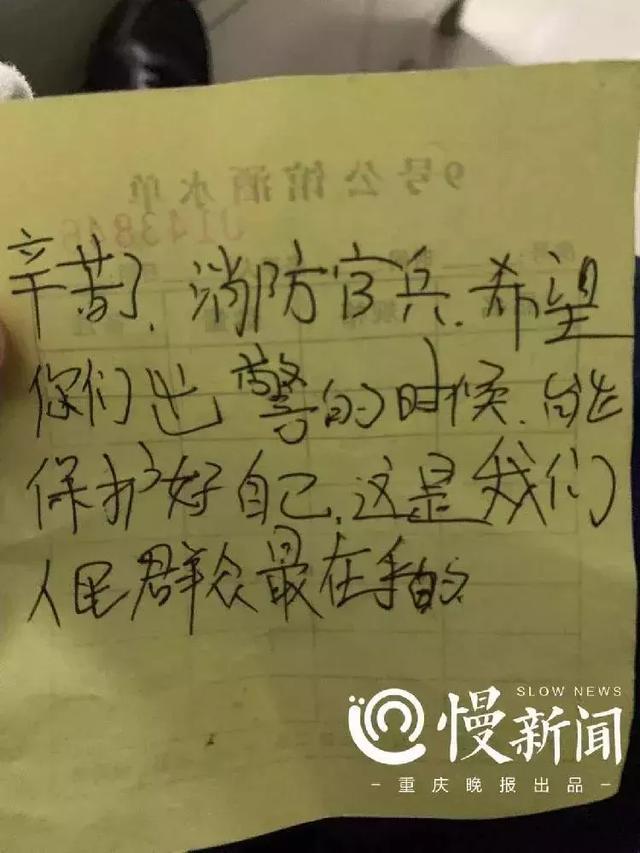 9号公馆酒水单
0143846
辛苦了,消防官兵.希望
你们出警的时候.能
保护好自己.这是我们
人民群众最在乎的.
SLOW NEWS
慢新闻
-重庆晚报出品-